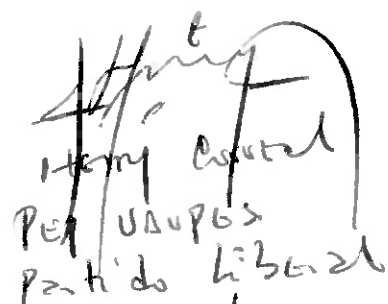 Henry Correal
PER VAUPES
partido Liberal